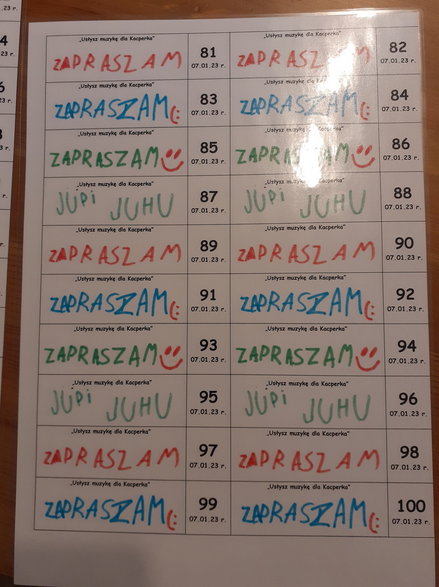 „Usłysz muzykę dla Kacperka" „Usłysz muzykę dla Kacperka"
ZAPRASZAM 81 07.01.23 r. ZAPRASZAM 82 07.01.23 r.
„Usłysz muzykę dla Kacperka" „Usłysz muzykę dla Kacperka"
ZAPRASZAM 83 07.01.23 r. ZAPRASZAM 84 07.01.23 r.
„Usłysz muzykę dla Kacperka" „Usłysz muzykę dla Kacperka"
ZAPRASZAM 85 07.01.23 r. ZAPRASZAM 86 07.01.23 r.
„Usłysz muzykę dla Kacperka" „Usłysz muzykę dla Kacperka"
JUPI JUHU 87 07.01.23 r. JUPI JUHU 88 07.01.23 r.
„Usłysz muzykę dla Kacperka" „Usłysz muzykę dla Kacperka"
ZAPRASZAM 89 07.01.23 r. ZAPRASZAM 90 07.01.23 r.
„Usłysz muzykę dla Kacperka" „Usłysz muzykę dla Kacperka"
ZAPRASZAM 91 07.01.23 r. ZAPRASZAM 92 07.01.23 r.
„Usłysz muzykę dla Kacperka" „Usłysz muzykę dla Kacperka"
ZAPRASZAM 93 07.01.23 r. ZAPRASZAM 94 07.01.23 r.
„Usłysz muzykę dla Kacperka" „Usłysz muzykę dla Kacperka"
JUPI JUHU 95 07.01.23 r. JUPI JUHU 96 07.01.23 r.
„Usłysz muzykę dla Kacperka" „Usłysz muzykę dla Kacperka"
ZAPRASZAM 97 07.01.23 r. ZAPRASZAM 98 07.01.23 r.
„Usłysz muzykę dla Kacperka" „Usłysz muzykę dla Kacperka"
ZAPRASZAM 99 07.01.23 r. ZAPRASZAM 100 07.01.23 r.